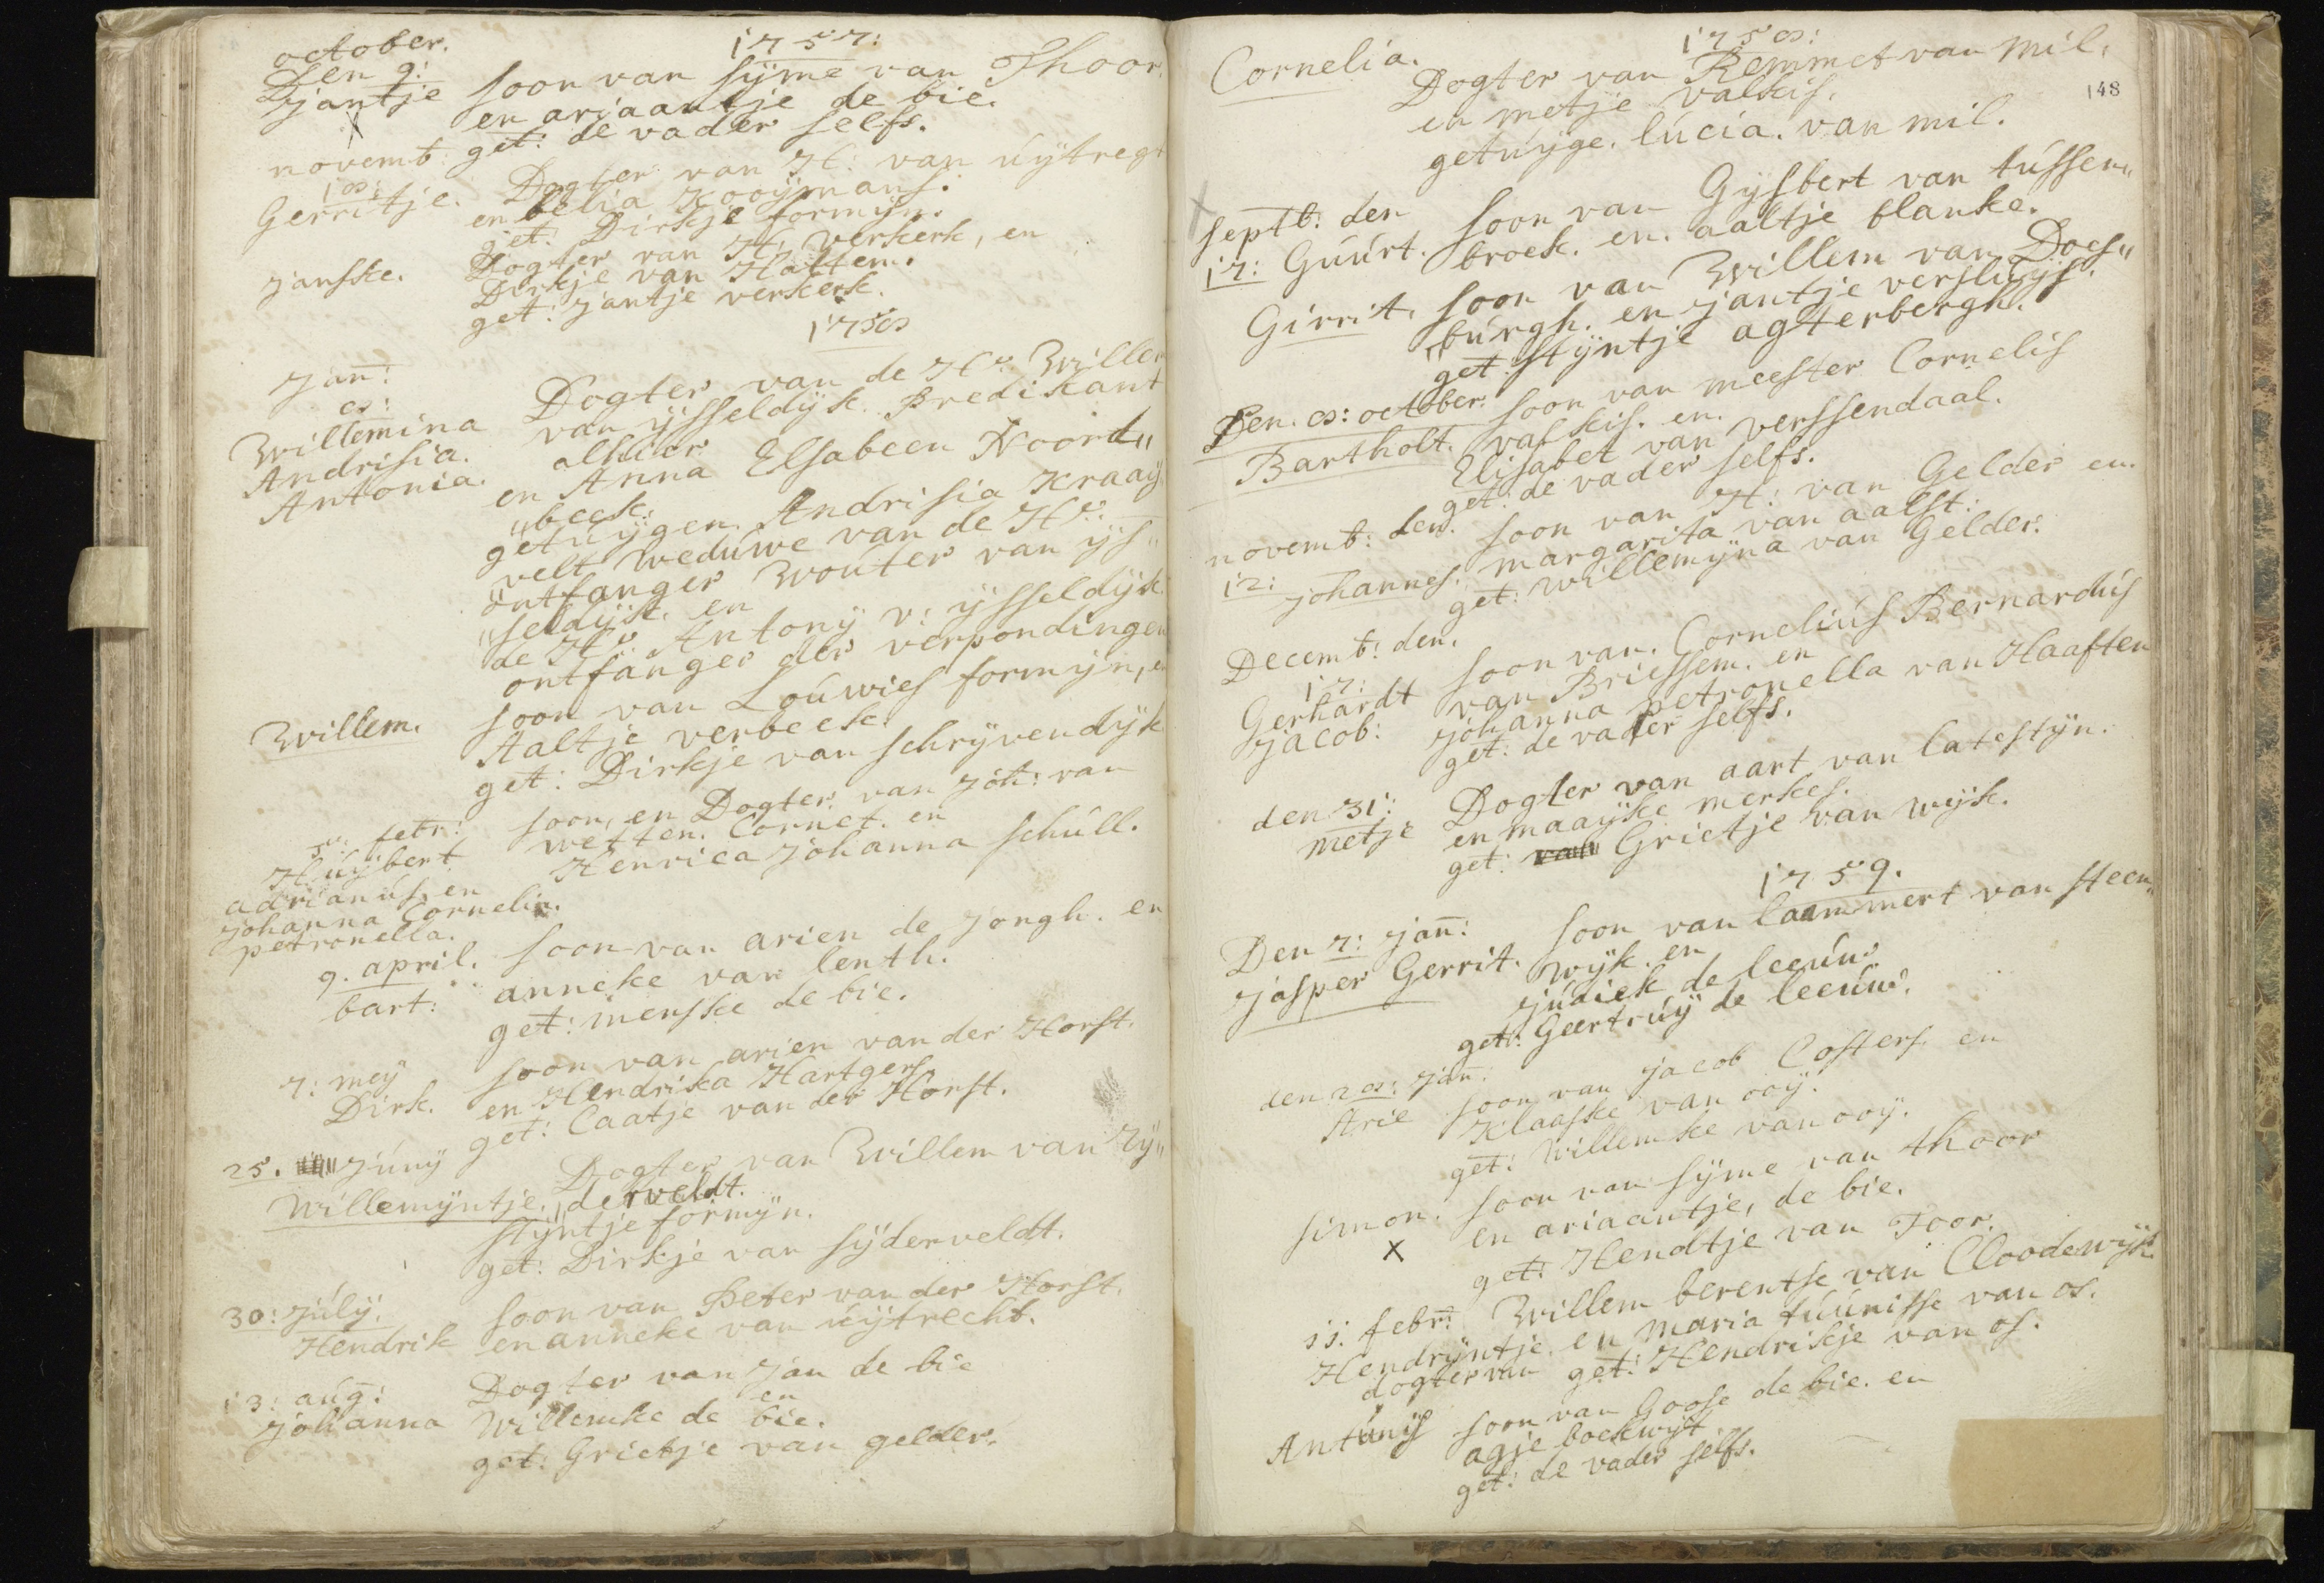 1757:
october.
Den 9:
Jantje soon van sÿme van Thoor.
en ariaantje de bie.
get: de vader selfs.
novemt:
18:
Gerritje. Dogter van H: van úÿtregt
en belia Kooÿmans.
get: Dirkje formÿn.
Janske. Dogter van H: verkerk, en
Dirkje van Hattem.
get: Jantje verkerk.
1758
Jan:
8:
Willemina Dogter van de Hr: Willem
Andrisia. van ÿsseldÿk. Predikant
Antonia. alhier
en Anna Elsabeen Noord„
„beek:
getuÿgen Andrisia Kraaÿ„
velt Wedúwe van de Hr:
ontfanger Woúter van ÿs„
„seldÿk. en
de Hr: Antonÿ v: ÿsseldÿk
ontfanger der verpondingen
Willem. soon van Loúwies formÿn, en
Aaltje verbeek.
get: Dirkje van schrÿvendÿk
5: febr: soon, en Dogter van Joh: van
Húÿbert wetten. Cornet. en
adrianús, en Henrica Johanna schúll.
Johanna Cornelia.
petronella.
9. april. soon van arien de Jongh. en
bart: anneke van lenth.
get: menske de bie.
7: meÿ soon van arien van der Horst.
Dirk. en Hendrika Hartgers.
get: Caatje van der Horst.
25. Júnÿ Dogter van Willem van Zÿ„
Willemÿntje. „derveldt.
stÿntje formÿn.
get: Dirkje van sÿderveldt.
30: Júlÿ. soon van Peter van der Horst.
Hendrik en anneke van úÿtrecht.
13: aúg: Dogter van Jan de bie
en
Johanna Willemke de bie.
get: Grietje van gelder.
1758:
148
Cornelia. Dogter van Remmet van mil.
en metje valkis.
getúÿge. lúcia. van mil.
septb: den soon van Gÿsbert van tússen„
17: Gúúrt. broek. en. aaltje blanke.
Girrit. soon van Willem van Does„
„búrgh. en Jantje verslúÿs.
get: stÿntje agterbergh.
Den. 8: october. soon van meester Cornelis
Bartholt. valkis. en.
Elisabet van verssendaal.
get: de vader selfs.
novemb: den. soon van H: van Gelder en.
12: Johannes. margarita van aalst:
get: Willemÿna van Gelder.
Decemb: den.
17: soon van. Corneliús Bernardús
Gerhardt van Briessem. en
Jacob: Johanna petronella van Haaften
get: de vader selfs.
den 31: Dogter van aart van latestÿn.
metje en maaÿke merkes.
get: Grietje van wÿk.
1759.
Den 7: Jan: soon van lammert van steen„
Jasper Gerrit. wÿk. en
Júdick de leeúw.
get: Geertrúÿ de leeúw.
den 28: Jan:
Arie soon van Jacob Costers en
Klaaske van ooÿ.
get: Willemke van ooÿ.
simon. soon van sÿme van thoor
X en ariaantje, de bie.
get: Hendtje van Toor.
11: febr: Willem berentse van Cloodewÿk.
Hendrÿntje. en maria túúnisse van os.
dogter van get: Hendrikje van os.
Antúnÿs soon van Goose de bie. en
agje boekwÿt
get: de vader selfs.